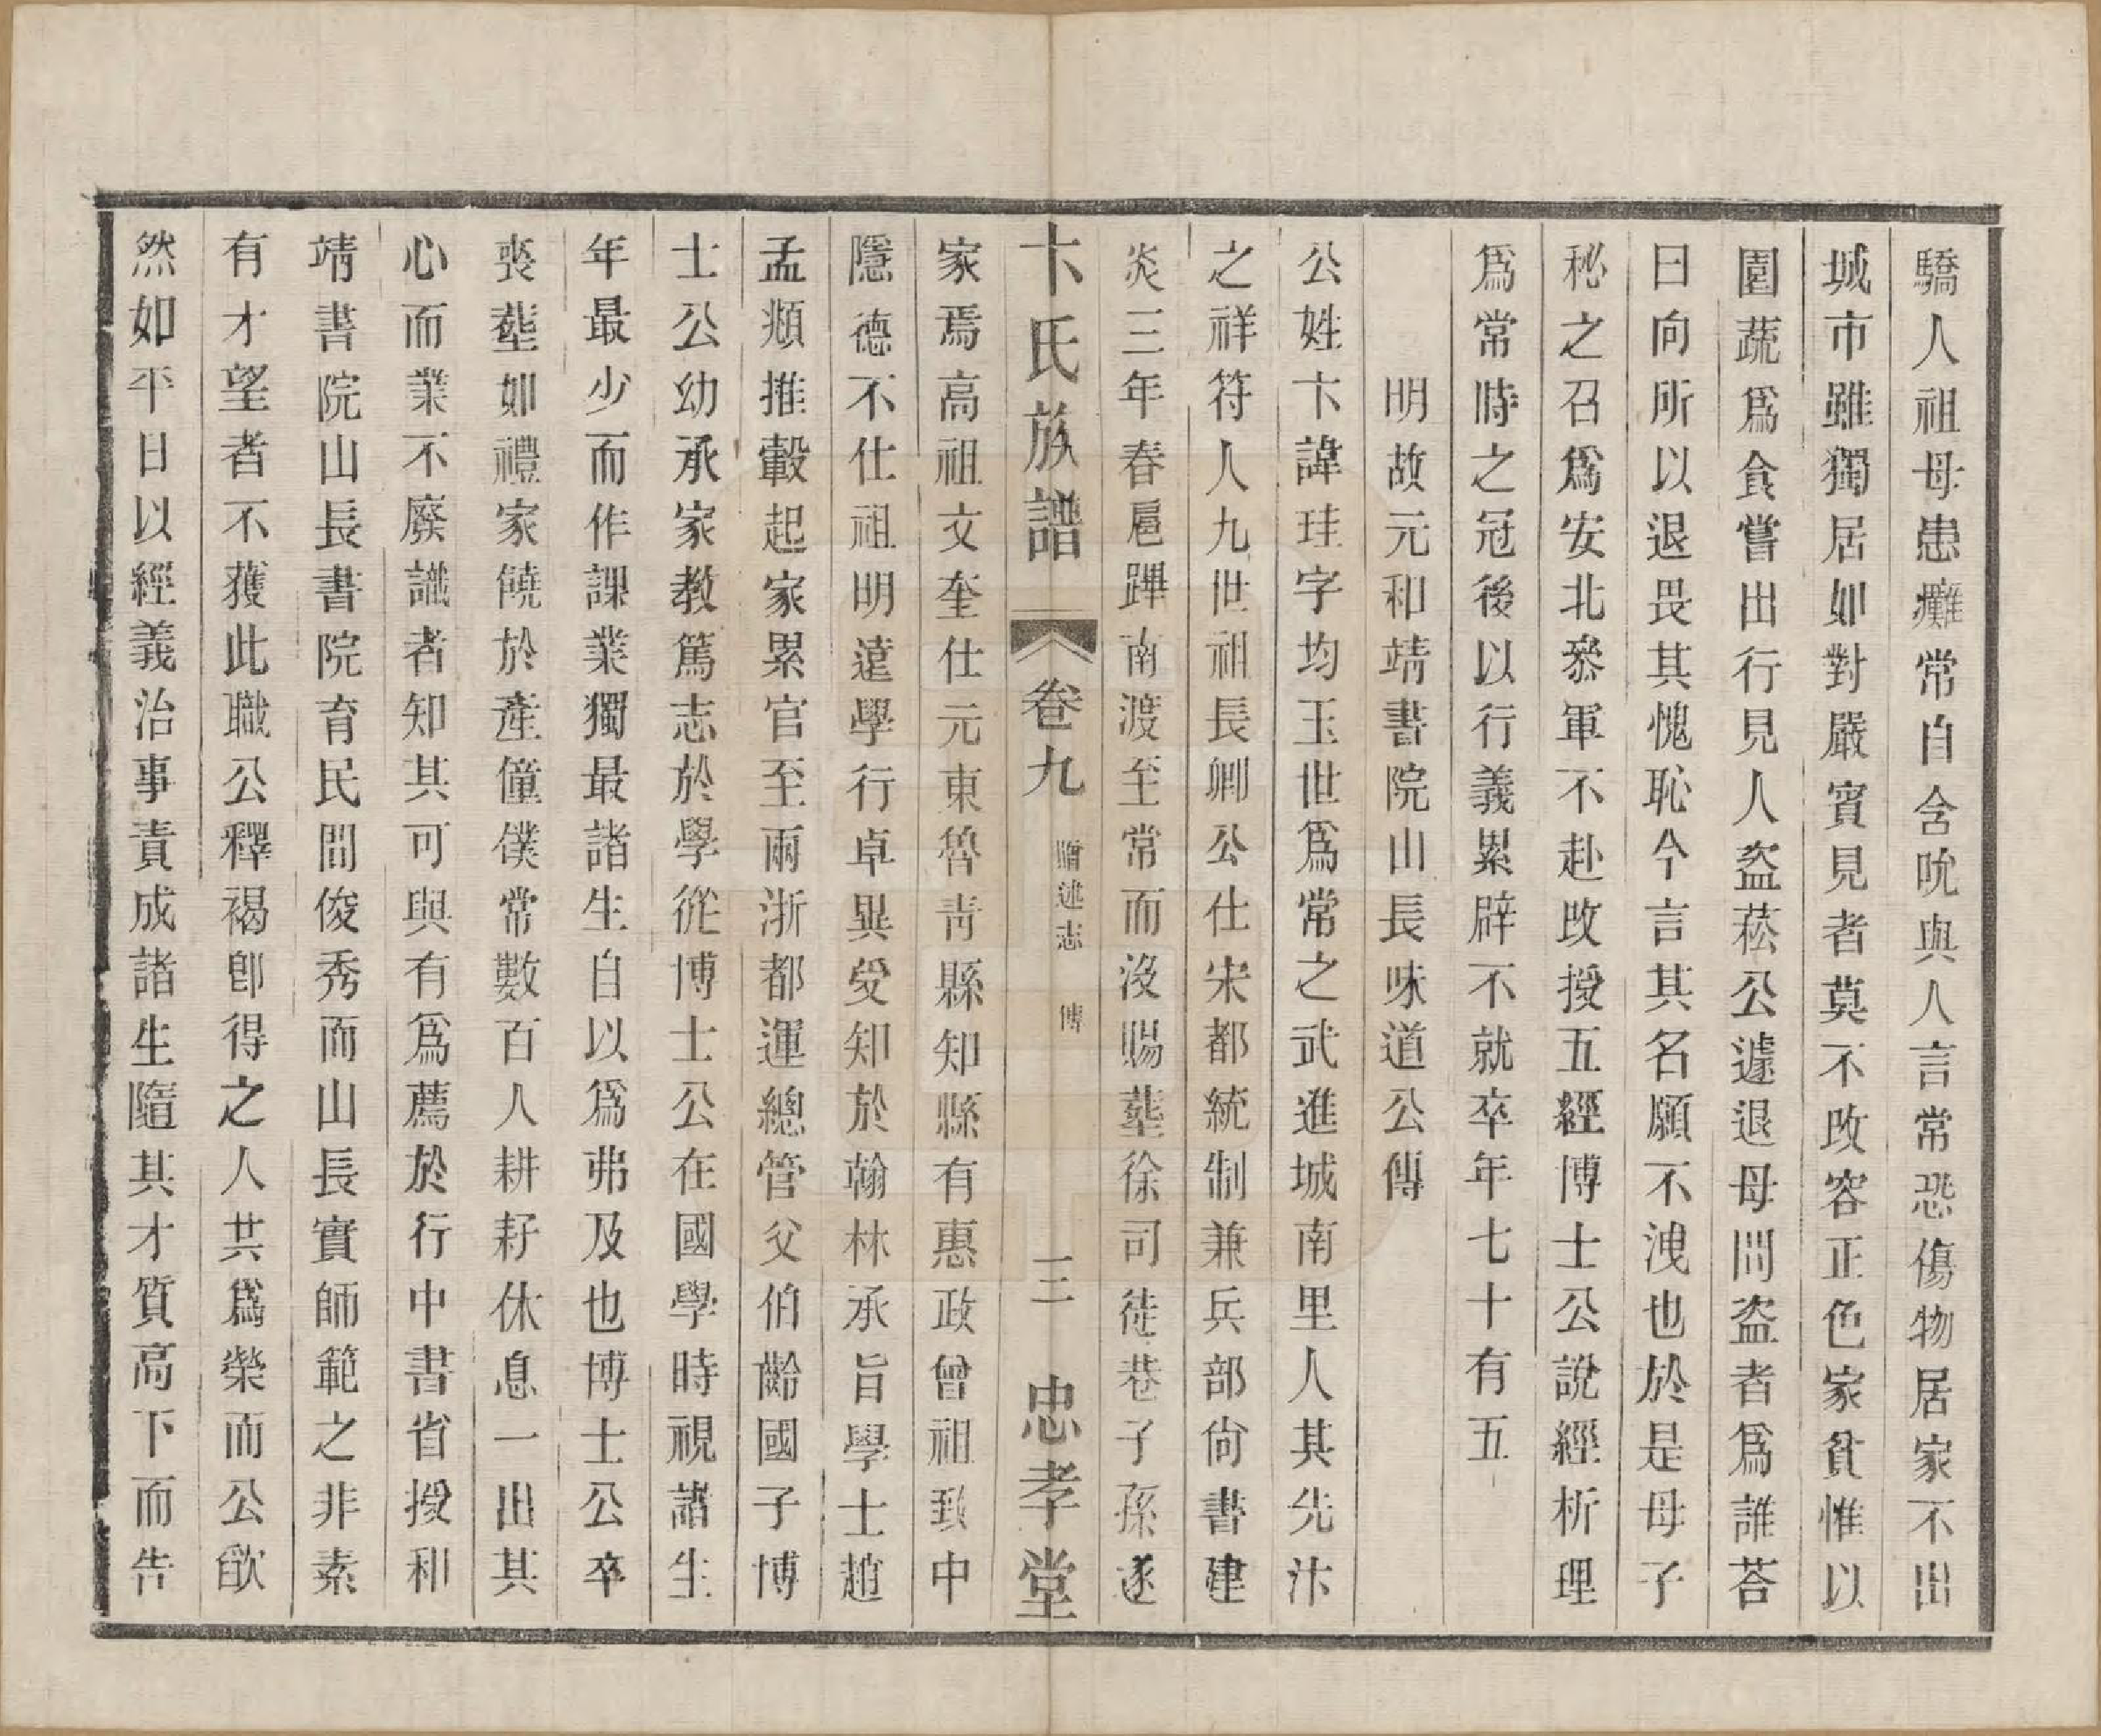 驕人祖母患癱常自含吮與人言常恐傷物居家不出
城市雖獨居如對嚴賓見者莫不改容正色家貧惟以
園蔬爲食嘗出行見人盜菘公遽退母問盜者爲誰荅
曰向所以退畏其愧恥今言其名願不洩也於是母子
秘之召爲安北叅軍不赴改授五經博士公說經析理
爲常時之冠後以行義累辟不就卒年七十有五
明故元和靖書院山長味道公傳
公姓卞諱珪字均玉世爲常之武進城南里人其先汴
之祥符人九世祖長卿公仕宋都統制兼兵部尙書建
炎三年春扈蹕南渡至常而沒賜塟徐司徒巷子孫遂
卞氏族譜 卷九 贈述志 傳 三 忠孝堂
家焉高祖文奎仕元東魯青縣知縣有惠政曾祖致中
隱德不仕祖明遠學行卓異受知於翰林承旨學士趙
孟頫推轂起家累官至兩浙都運總管父伯齡國子博
士公幼承家教篤志於學從博士公在國學時視諸生
年最少而作課業獨最諸生自以爲弗及也博士公卒
喪塟如禮家饒於產僮僕常數百人耕耔休息一出其
心而業不廢識者知其可與有爲薦於行中書省授和
靖書院山長書院育民間俊秀而山長實師範之非素
有才望者不獲此職公釋褐卽得之人共爲榮而公欿
然如平日以經義治事責成諸生隨其才質高下而告